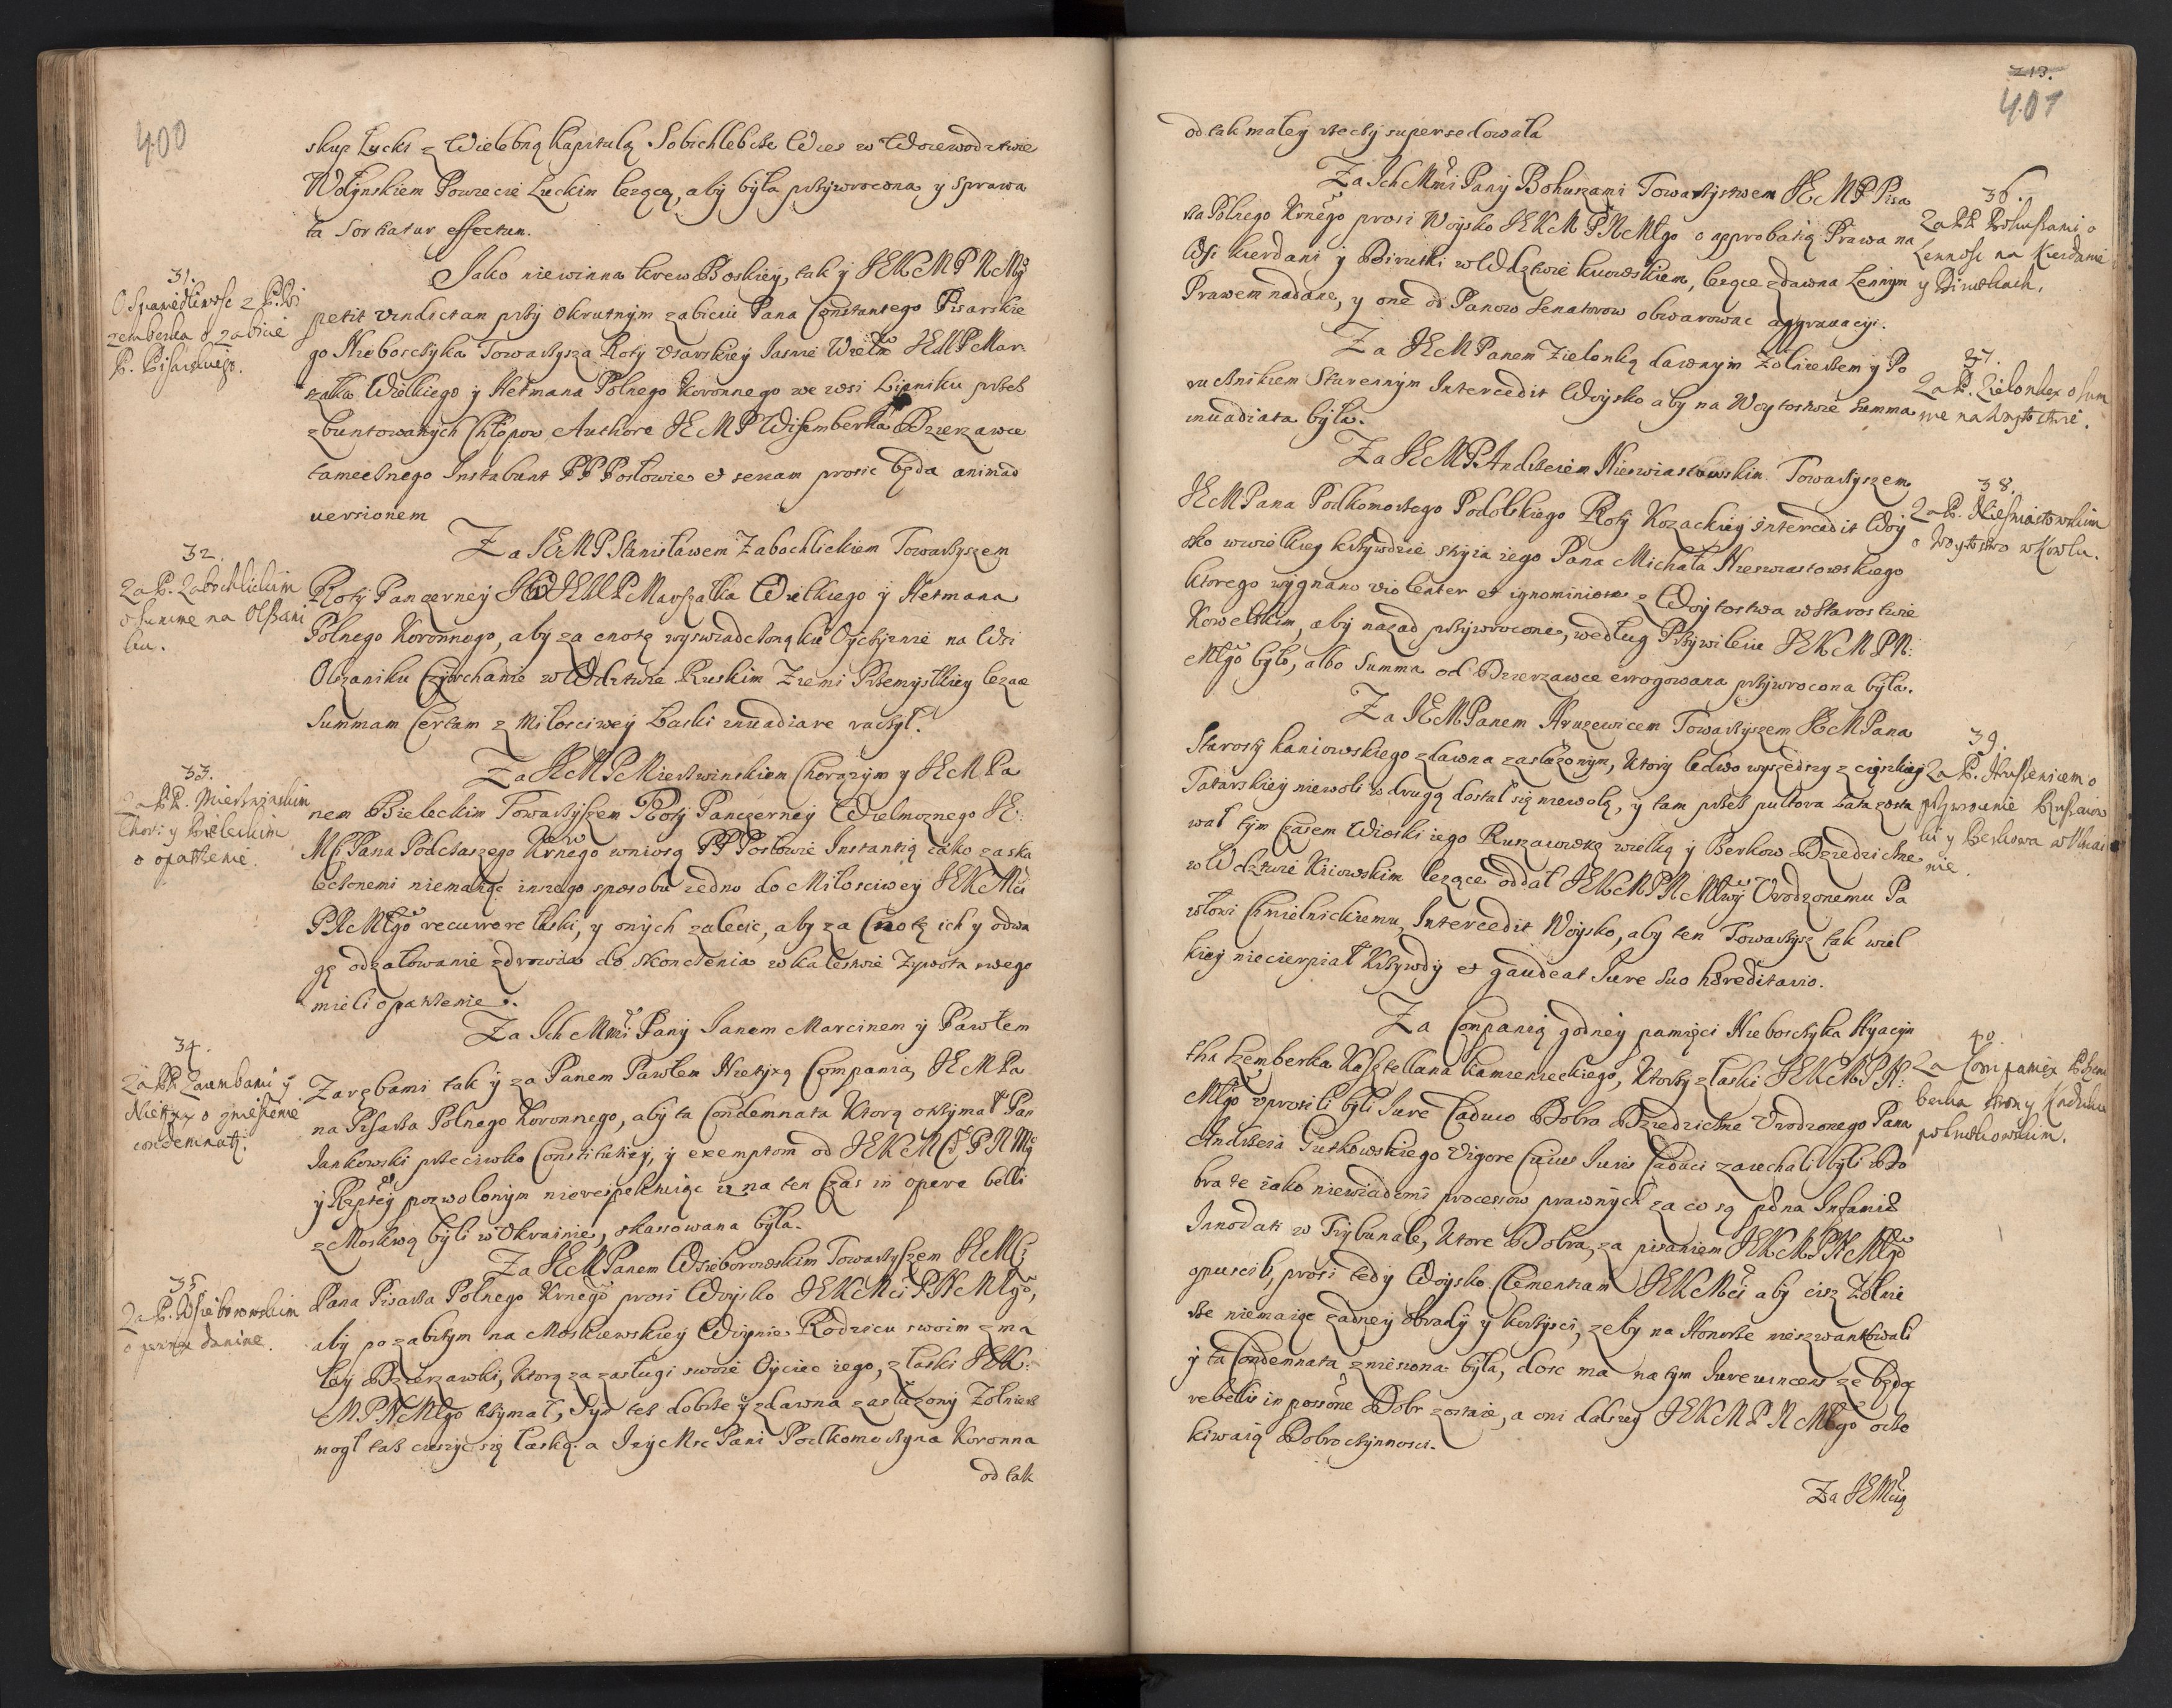 400
skup Łucki z Wielebną Kapitułą Sobichlebite Wies w Woiewodztwie
Wołynskiem Powiecie Łuckim lezącą, aby była przywrocona y sprawa
ta sortiatur effectum.
31.
O Sprawiedliwosc z P. Wi
zemberka o zabicie
P. Pisarskiego.
Jako niewinna krew Boskiey, tak y JEKMPNMgo
petit vindictam przy okrutnym zabiciu Pana Constantego Pisarskie
go Nieboszczyka Towarzysza Roty Usarskiey Jasnie Wielmo JEMPMar
szałka Wielkiego y Hetmana Polnego Koronnego we wsi Lipniku przez
zbuntowanych Chłopow Authore JEMP Wisemberka Dzierzawce
tamecznego Instabunt PP Posłowie et seriam prosic będą animad
versionem
32.
Za P. Zabochlickim
o summe na Olszani
ku.
Za JEMP Stanisławem Zabochlickiem Towarzyszem
Roty Pancerney JW JEMP Marszałka Wielkiego y Hetmana
Polnego Koronnego, aby za cnotę wyswiadczoną ku Oyczyznie na Wsi
Olszaniku Czyschanie w Wdztwie Ruskim Ziemi Przemyskiey lezące
Summam Certam z Miłosciwey Łaski inuadiare raczył.
33.
Za PP. Mierzwinskim
Chorą: y Bieleckim
o opatrzenie.
Za JEMP Mierzwinskiem Chorązym y JEMPa
nem Bieleckim Towarzyszem Roty Pancerney Wielmoznego JE
MPana Podczaszego Krnego wniosą PP Posłowie Instantią iako zaska
leczonemi niemaiąc inszego sposobu iedno do Miłosciwey JEKMci
PNMłgo recurrere łaski, y onych zalecic, aby za Cnotę ich y odwa
gę odzałowanie zdrowia do skonczenia w kalestwie Zywota swego
mieli opatrzenie.
34.
Za PP. Zarembami y
Nietyxą o zniesienie
condemnaty.
Za Ich Mmi Pany Janem Marcinem y Pawłem
Zarębami tak y za Panem Pawłem Nietyxą Compania JEMPa
na Pisarza Polnego Koronnego, aby ta Condemnata ktorą otrzymał Pan
Jankowski przeciwko Constitucyey, y exemptom od JEKMCi PNMgo
y Rzptey pozwolonym niorespektuiąc iz na ten Czas in opere belli
z Moskwą byli w Ukrainie, skassowana była.
35.
Za P. Wsieborowskim
o pewną daninę.
Za JEMPanem Wsieborowskim Towarzyszem JEMCi
Pana Pisarza Polnego Krnego prosi Woysko JEKMci PNMMłgo,
aby po zabitym na Moskiewskiey Woynie Rodzicu swoim z ma
łey Dzierzawki, ktorą za zasługi swoie Oyciec iego, z łaski JEK
MPNMłgo trzymał, Syn tez dobrze y zdawna zasłuzony Zołnierz
mogł taz cieszyc się łaską. a Jey Msc Pani Podkomorzyna Koronna
od tak
213.
401
od tak małey rzeczy supersedowała
36.
Za PP. Bohuszami o
Lennosc na Kierdanie
y Birukach.
Za Ich Mmi Pany Bohuszami Towarzystwem JEMP Pisa
rza Polnego Krnego prosi Woysko JEKMPNMMłgo o approbatią Prawa na
Wsi Kierdani y Biruki w Wdztwie Kiowskiem, lezące zdawna Lennym
Prawem nadane, y one od Panow Senatorow obwarowac aggravacyi.
37.
Za P. Zielonką o sum
mę na Woytostwie.
Za JEMPanem Zielonką dawnym Zołnierzem y Po
rucznikiem Starennym Intercedit Woysko aby na Woytostwie Summa
inuadiata była.
38.
Za P. Niesmiastowskim
o Woytostwo w Kowlu.
Za JEMP Andrzeiem Nieswiastowskim Towarzyszem
JEMPana Podkomorzego Podolskiego Roty Kozackiey intercedit Woy
sko w wielkiey krzywdzie stryia iego Pana Michała Nieswiastowskiego
ktorego wygnano violenter et ignominiose z Woytostwa w Starostwie
Kowelskim, aby nazad przywrocone, według Przywileiu JEKMPN
Młgo było, albo Summa od Dzierzawce errogowana przywrocona była.
39.
Za P. Hruszewicem o
przywrocenie Ruszawo
ki y Berkowa w Ukrai
nie.
Za JEMPanem Hruzewicem Towarzyszem JEMPana
Starosty Kaniowskiego zdawna zasłuzonym, ktory ledwo wyszedszy z cięzkiey
Tatarskiey niewoli w drugą dostał się niewolą, y tam przez pułtora lata zosta
wał tym Czasem Wioski iego Ruszawskę wielką y Berkow Dziedziczne
w Wdztwie Kiiowskim lezące oddał JEKMPNMMłwy Urodzonemu Pa
włowi Chmielnickiemu, Intercedit Woysko, aby ten Towarzysz tak wiel
kiey niecierpiał krzywdy et gaudeat Iure suo hæreditario.
40.
Za Companią P. Szem
berka strony Kaduku
po Gutkowskim.
Za Companią godney pamięci Nieboszczyka Hyacyn
tha Szemberka Kasztellana Kamienieckiego, ktorzy z łaski JEKMPN
Młgo uprosili byli Iure Caduco Dobra Dziedziczne Urodzonego Pana
Andrzeia Gutkowskiego Vigore Cuius Iuris Caduci zaiechali byli Do
bra te iako niewiadomi processow prawnych za co są pdna Infamiæ
Innodati w Trybunale, ktore Dobra, za pisaniem JEKMPNMMłgo
opuscili, prosi tedy Woysko Clementiam JEKMci aby ciz Zołnie
rze niemaiąc zadney obrady y korzysci, zeby na Honorze nieszwankowali
y ta Condemnata zniesiona była, dosc ma na tym Iure vincens ze będąc
rebellis in possone Dobr zostaie, a oni dalszey JEKMPNMMłgo ocze
kiwaią Dobroczynnosci.
Za JEMcią